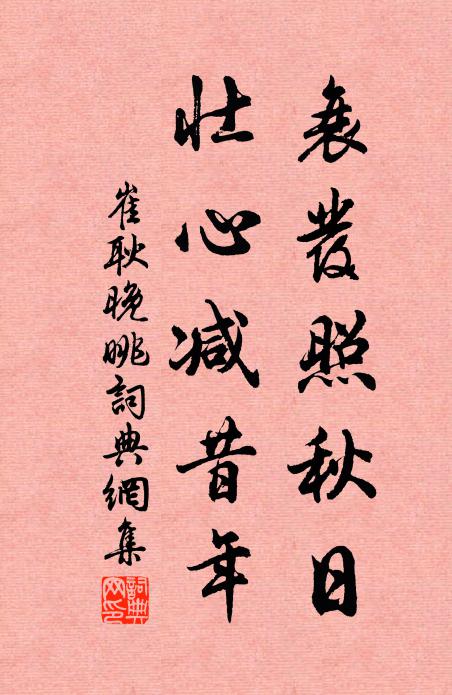 衰發照秋日
壯心減昔年
崔耿晚眺詞典網集
詞典網印